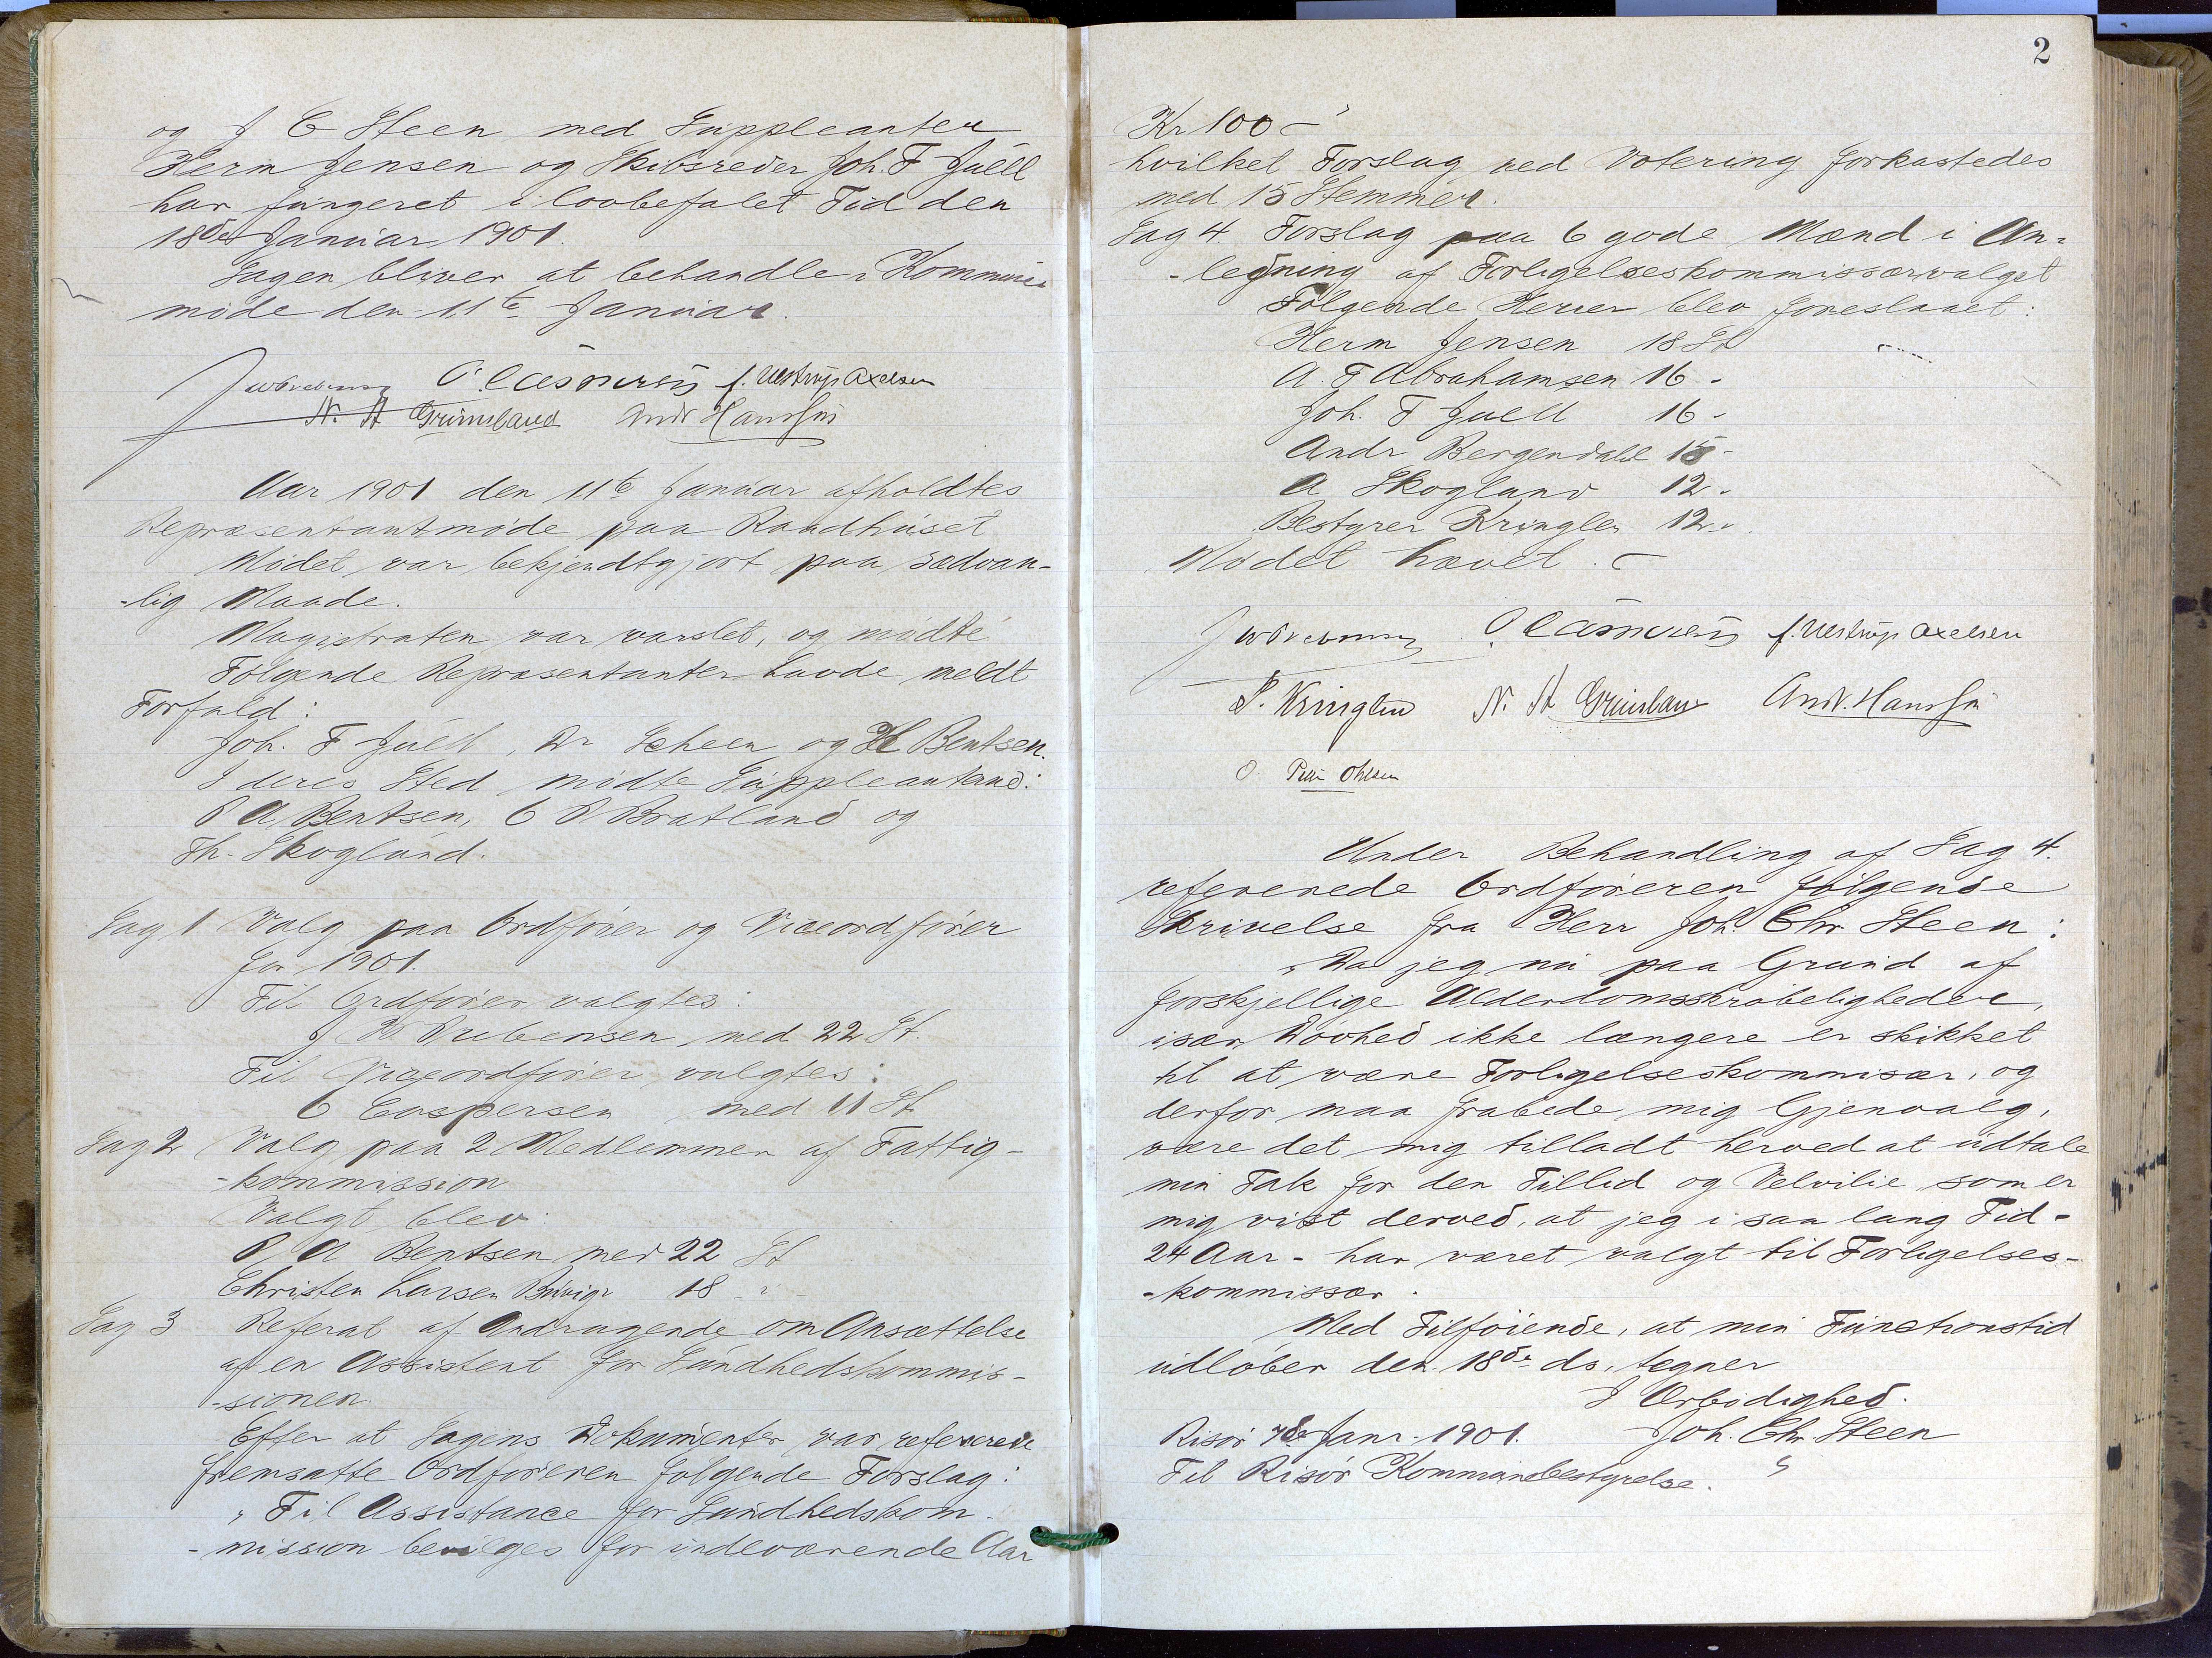 og J C Steen med Suppleanter
Herm Jensen og Skibsreder Joh. F Juell
har fungeret i lovbefalet Tid den
18de Januar 1901.
Sagen bliver at behandle i Kommune
møde den 11te Januar.
O. Caspersen f. Ulstrup Axelsen
N. A Grimsland Andr Hansen
Aar 1901 den 11te Januar afholdtes
Repræsentantmøde paa Raadhuset
Mødet var bekjendtgjort paa sædvan-
-lig Maade.
Magistraten var varslet, og mødte
Følgende Repræsentanter havde meldt
Forfald:
Joh. F Juell, Dr Scheen og H Bentsen.
I deres Sted mødte Suppleanterne:
P A Bentsen, O P Bratland og
Th. Skoglund.
Sag 1 Valg paa Ordfører og Viceordfører
for 1901.
Til Ordfører valgtes:
J W Prebensen med 22 St.
Til Viceordfører valgtes:
O Caspersen med 11 St.
Sag 2 Valg paa 2 Medlemmer af Fattig-
-kommission
Valgt blev:
P A Bentsen med 22 St
Christen Larsen 18 "
Sag 3 Referat af Andragende om Ansættelse
af en Assistent for Sundhedskommis-
-sionen.
Efter at Sagens Dokumenter var refererede
fremsatte Ordføreren følgende Forslag:
"Til Assistance for Sundhedskom-
-mission bevilges for indeværende Aar
2
Kr 100 -"
hvilket Forslag ved Votering forkastedes
med 15 Stemmer.
Sag 4. Forslag paa 6 gode Mænd i An-
-ledning af Forligelseskommissærvalget
Følgende Herrer blev foreslaaet:
Herm Jensen 18 St
A. F Abrahamsen 16 -
Joh. F Juell 16 -
Andr Bergendahl 15 -
A Skoglund 12 -
Bestyrer Kringlen 12 -
Mødet hævet. -
O. Caspersen f. Ulstrup Axelsen
P. Kringlen N. A Grimsland Andr. Hansen
O. Ohlsen
Under Behandling af Sag 4.
refererede Ordføreren følgende
Skrivelse fra Herr Joh. Chr. Steen:
"Da jeg nu paa Grund af
forskjellige Alderdomsskrøbeligheder,
især Døvhed ikke længere er skikket
til at være Forligelseskommisær, og
derfor maa frabede mig Gjenvalg,
være det mig tilladt herved at udtale
min Tak for den Tillid og Velvilie som er
mig vist derved, at jeg i saa lang Tid -
24 Aar - har været valgt til Forligelses-
-kommissær.
Med Tilføiende, at min Functionstid
udløber den 18de ds, tegner
I Ærbødighed.
Risør 7de Janr. 1901. Joh. Chr. Steen
Til Risør Kommunebestyrelse. "